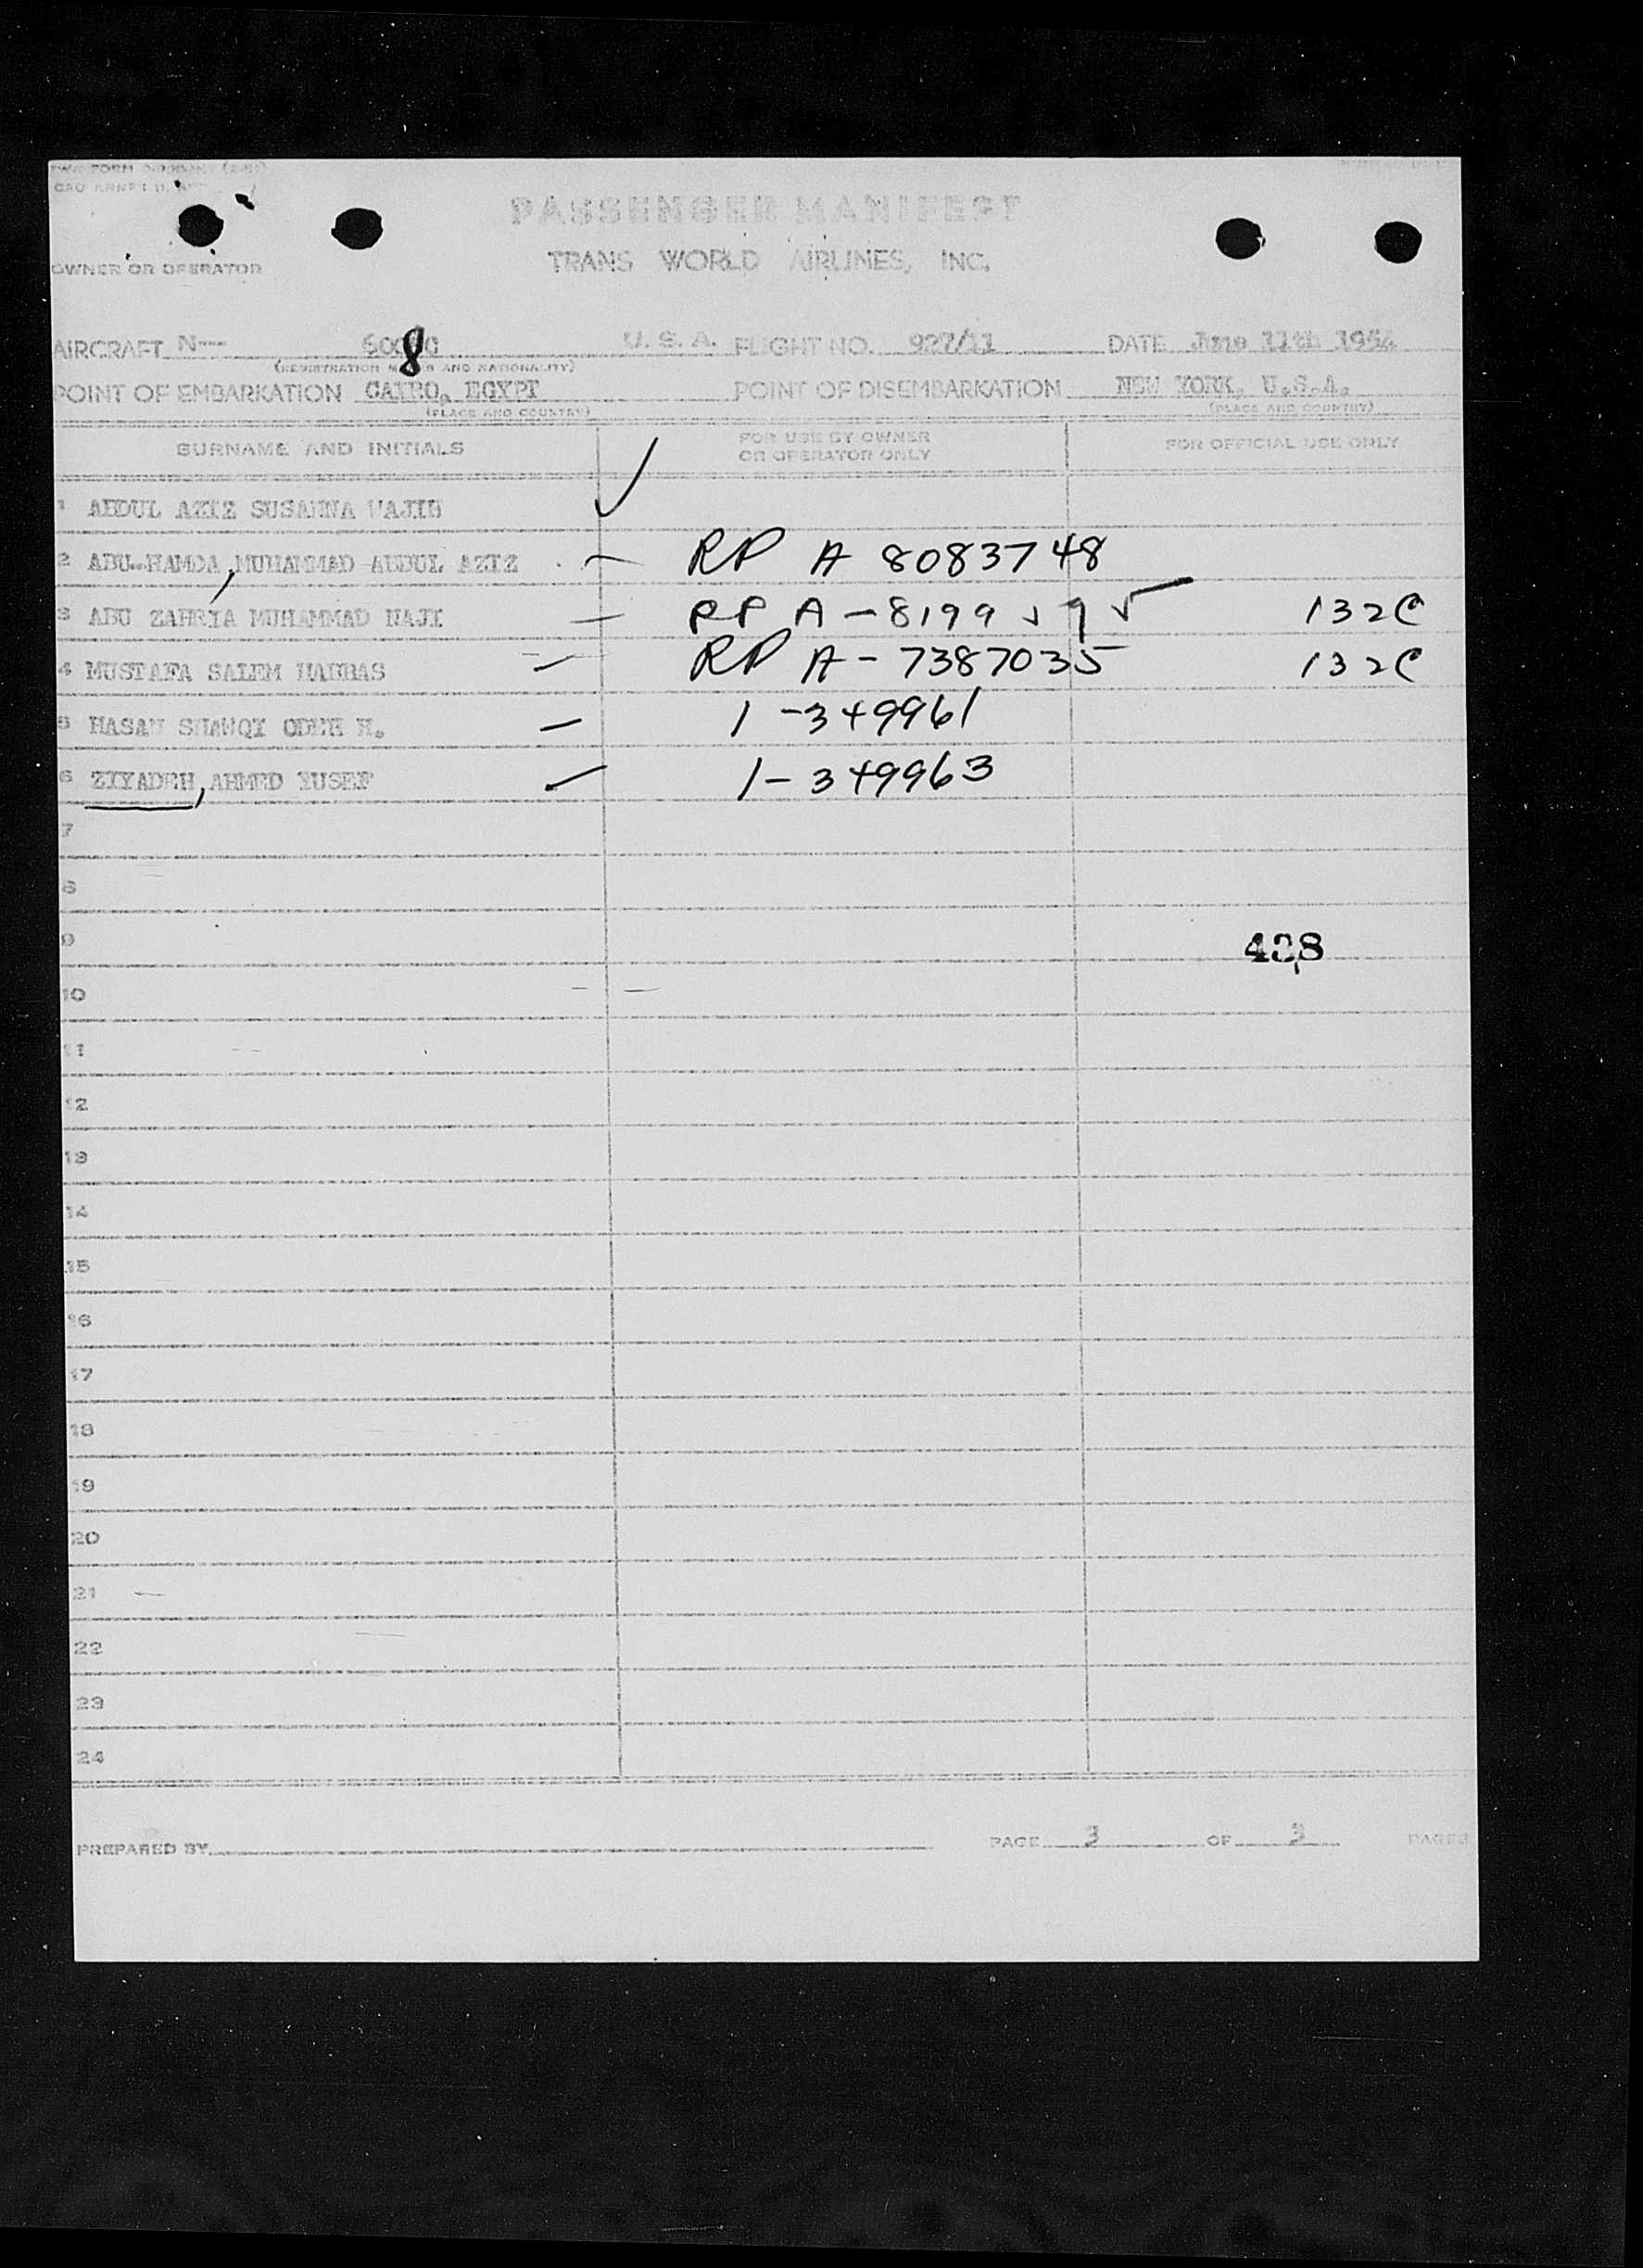 PASSENGER MANIFEST
OWNER OR OPERATOR TRANS WORLD AIRLINES, INC.
AIRCRAFT N--- 60080 U. S. A. FLIGHT NO. 927/11 DATE June 11th 1954
(REGISTRATION MARKS AND NATIONALITY)
POINT OF EMBARKATION CAIRO, EGYPT POINT OF DISEMBARKATION NEW YORK, U.S.A.
(PLACE AND COUNTRY) (PLACE AND COUNTRY)
SURNAME AND INITIALS FOR USE BY OWNER OR OPERATOR ONLY FOR OFFICIAL USE ONLY
1 ABDUL AZIZ SUSANNA WAJIH
2 ABU-HAMDA, MUHAMMAD ABDUL AZIZ — RP A 8083748
3 ABU ZAHRIA MUHAMMAD NAJI — RP A-8199 132C
4 MUSTAFA SALEM — RP A-7387035 132C
5 HASAN SHAWQI ODEH H. — 1-349961
6 ZIYADEH, AHMED YUSEF — 1-349963
7
8
9 438
10
11
12
13
14
15
16
17
18
19
20
21
22
23
24
PREPARED BY PAGE 3 OF 3 PAGES